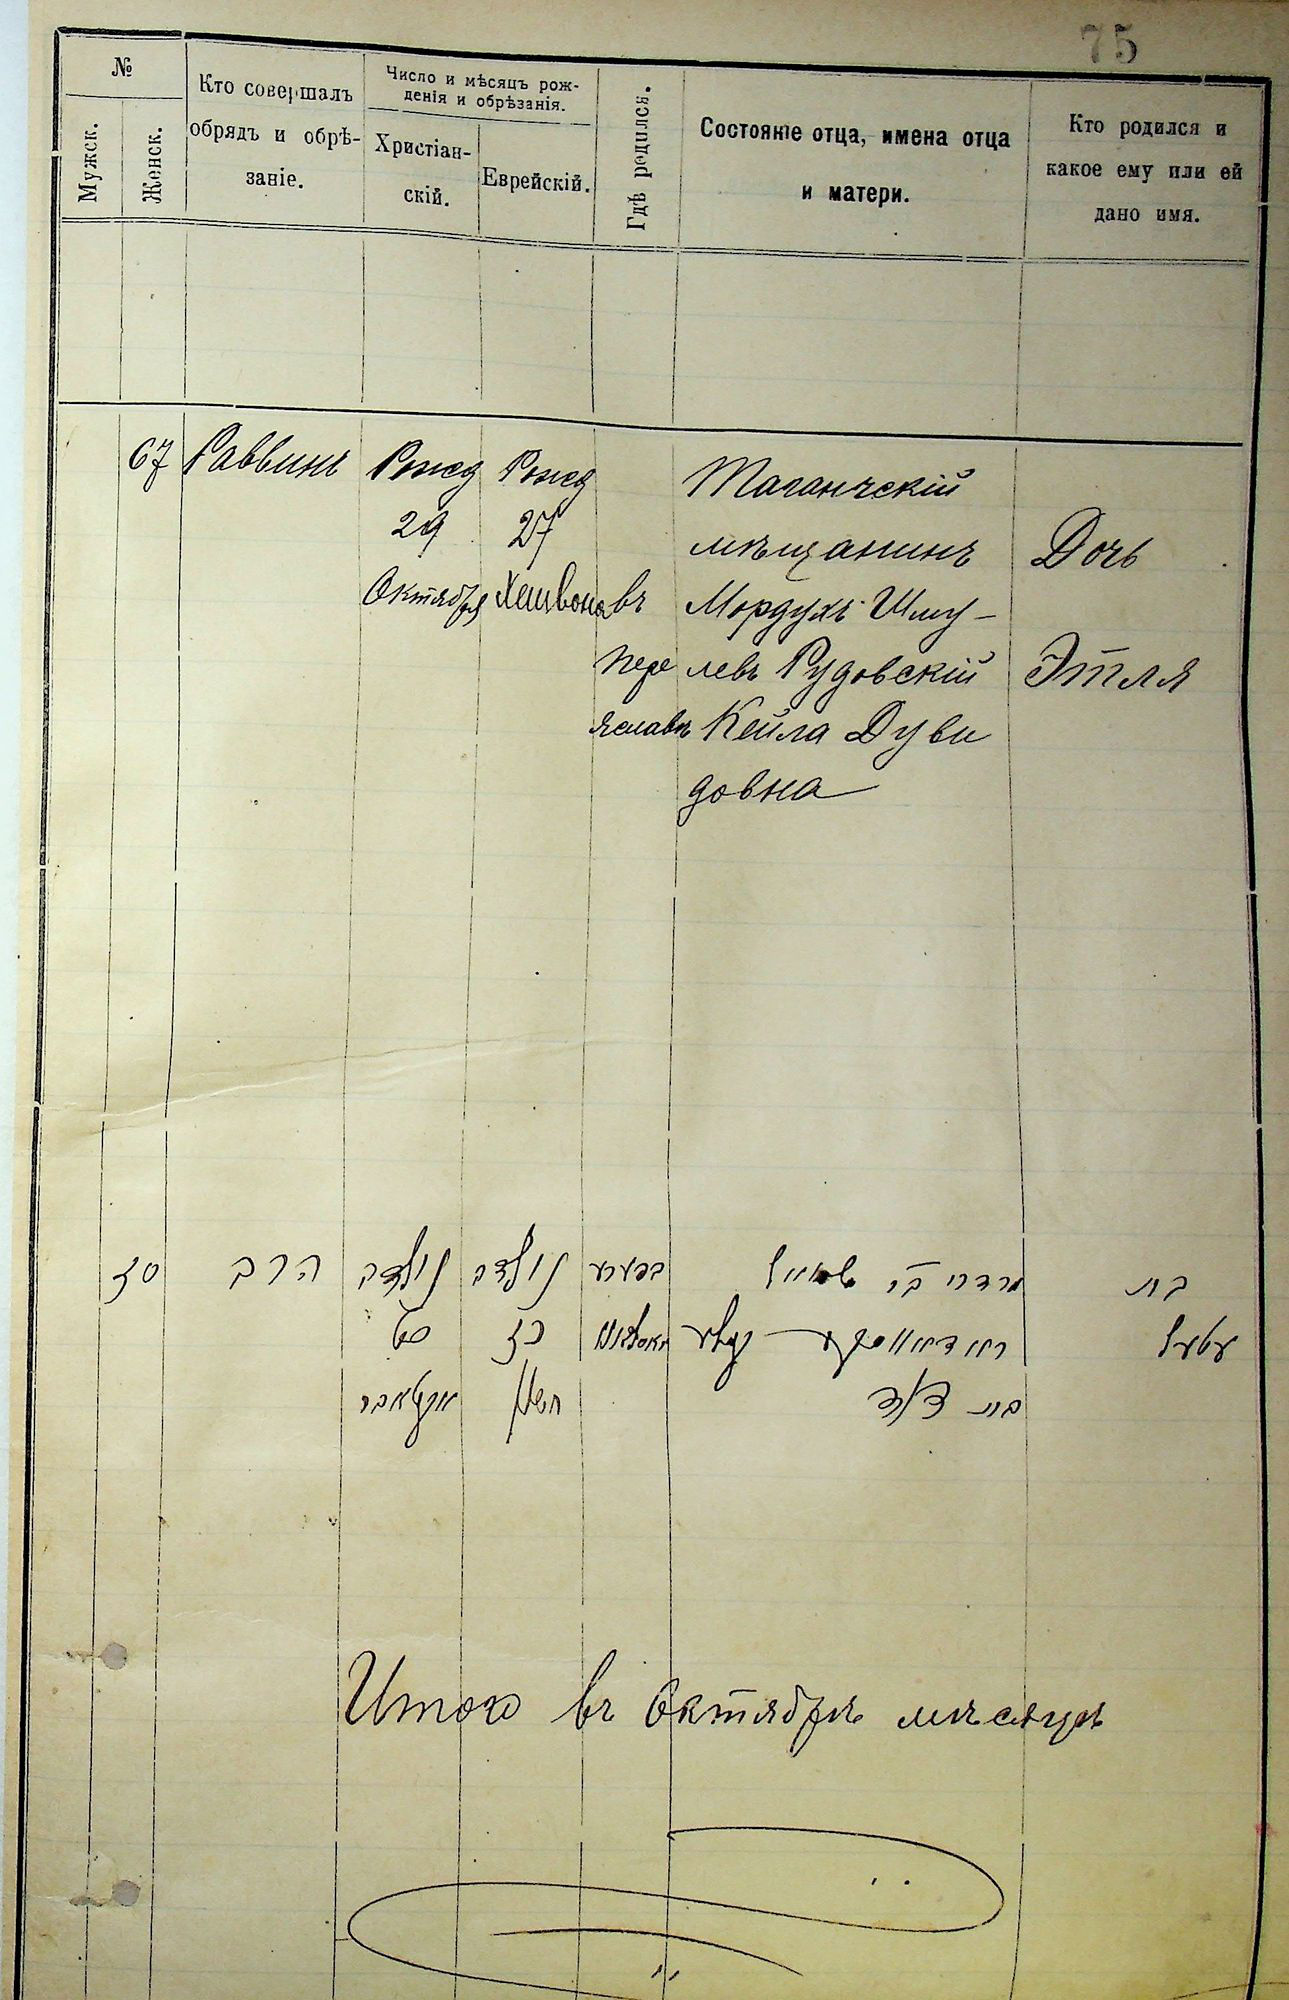 75
№
Мужск.
Женск.
Кто совершалъ
обрядъ и обрѣ-
заніе.
Число и мѣсяцъ рож-
денія и обрѣзанія.
Христіан-
скій.
Еврейскій.
Гдѣ родился.
Состояніе отца, имена отца
и матери.
Кто родился и
какое ему или ей
дано имя.
67
Раввинъ
Рожд
29
Октября
Рожд
27
Хешвона
въ
Пере
яславѣ
Таганчскій
мѣщанинъ
Мордухъ Шму-
левъ Рудовскій
Кейла Дуви
довна
Дочь
Этля
סז
הרב
נולדה
כט
אקטאבר
נולדה
כז
חשון
מרדכי בר שמואל
קיילע
בת דוד
בת
עטעל
Итого въ Октябрѣ мѣсяцѣ